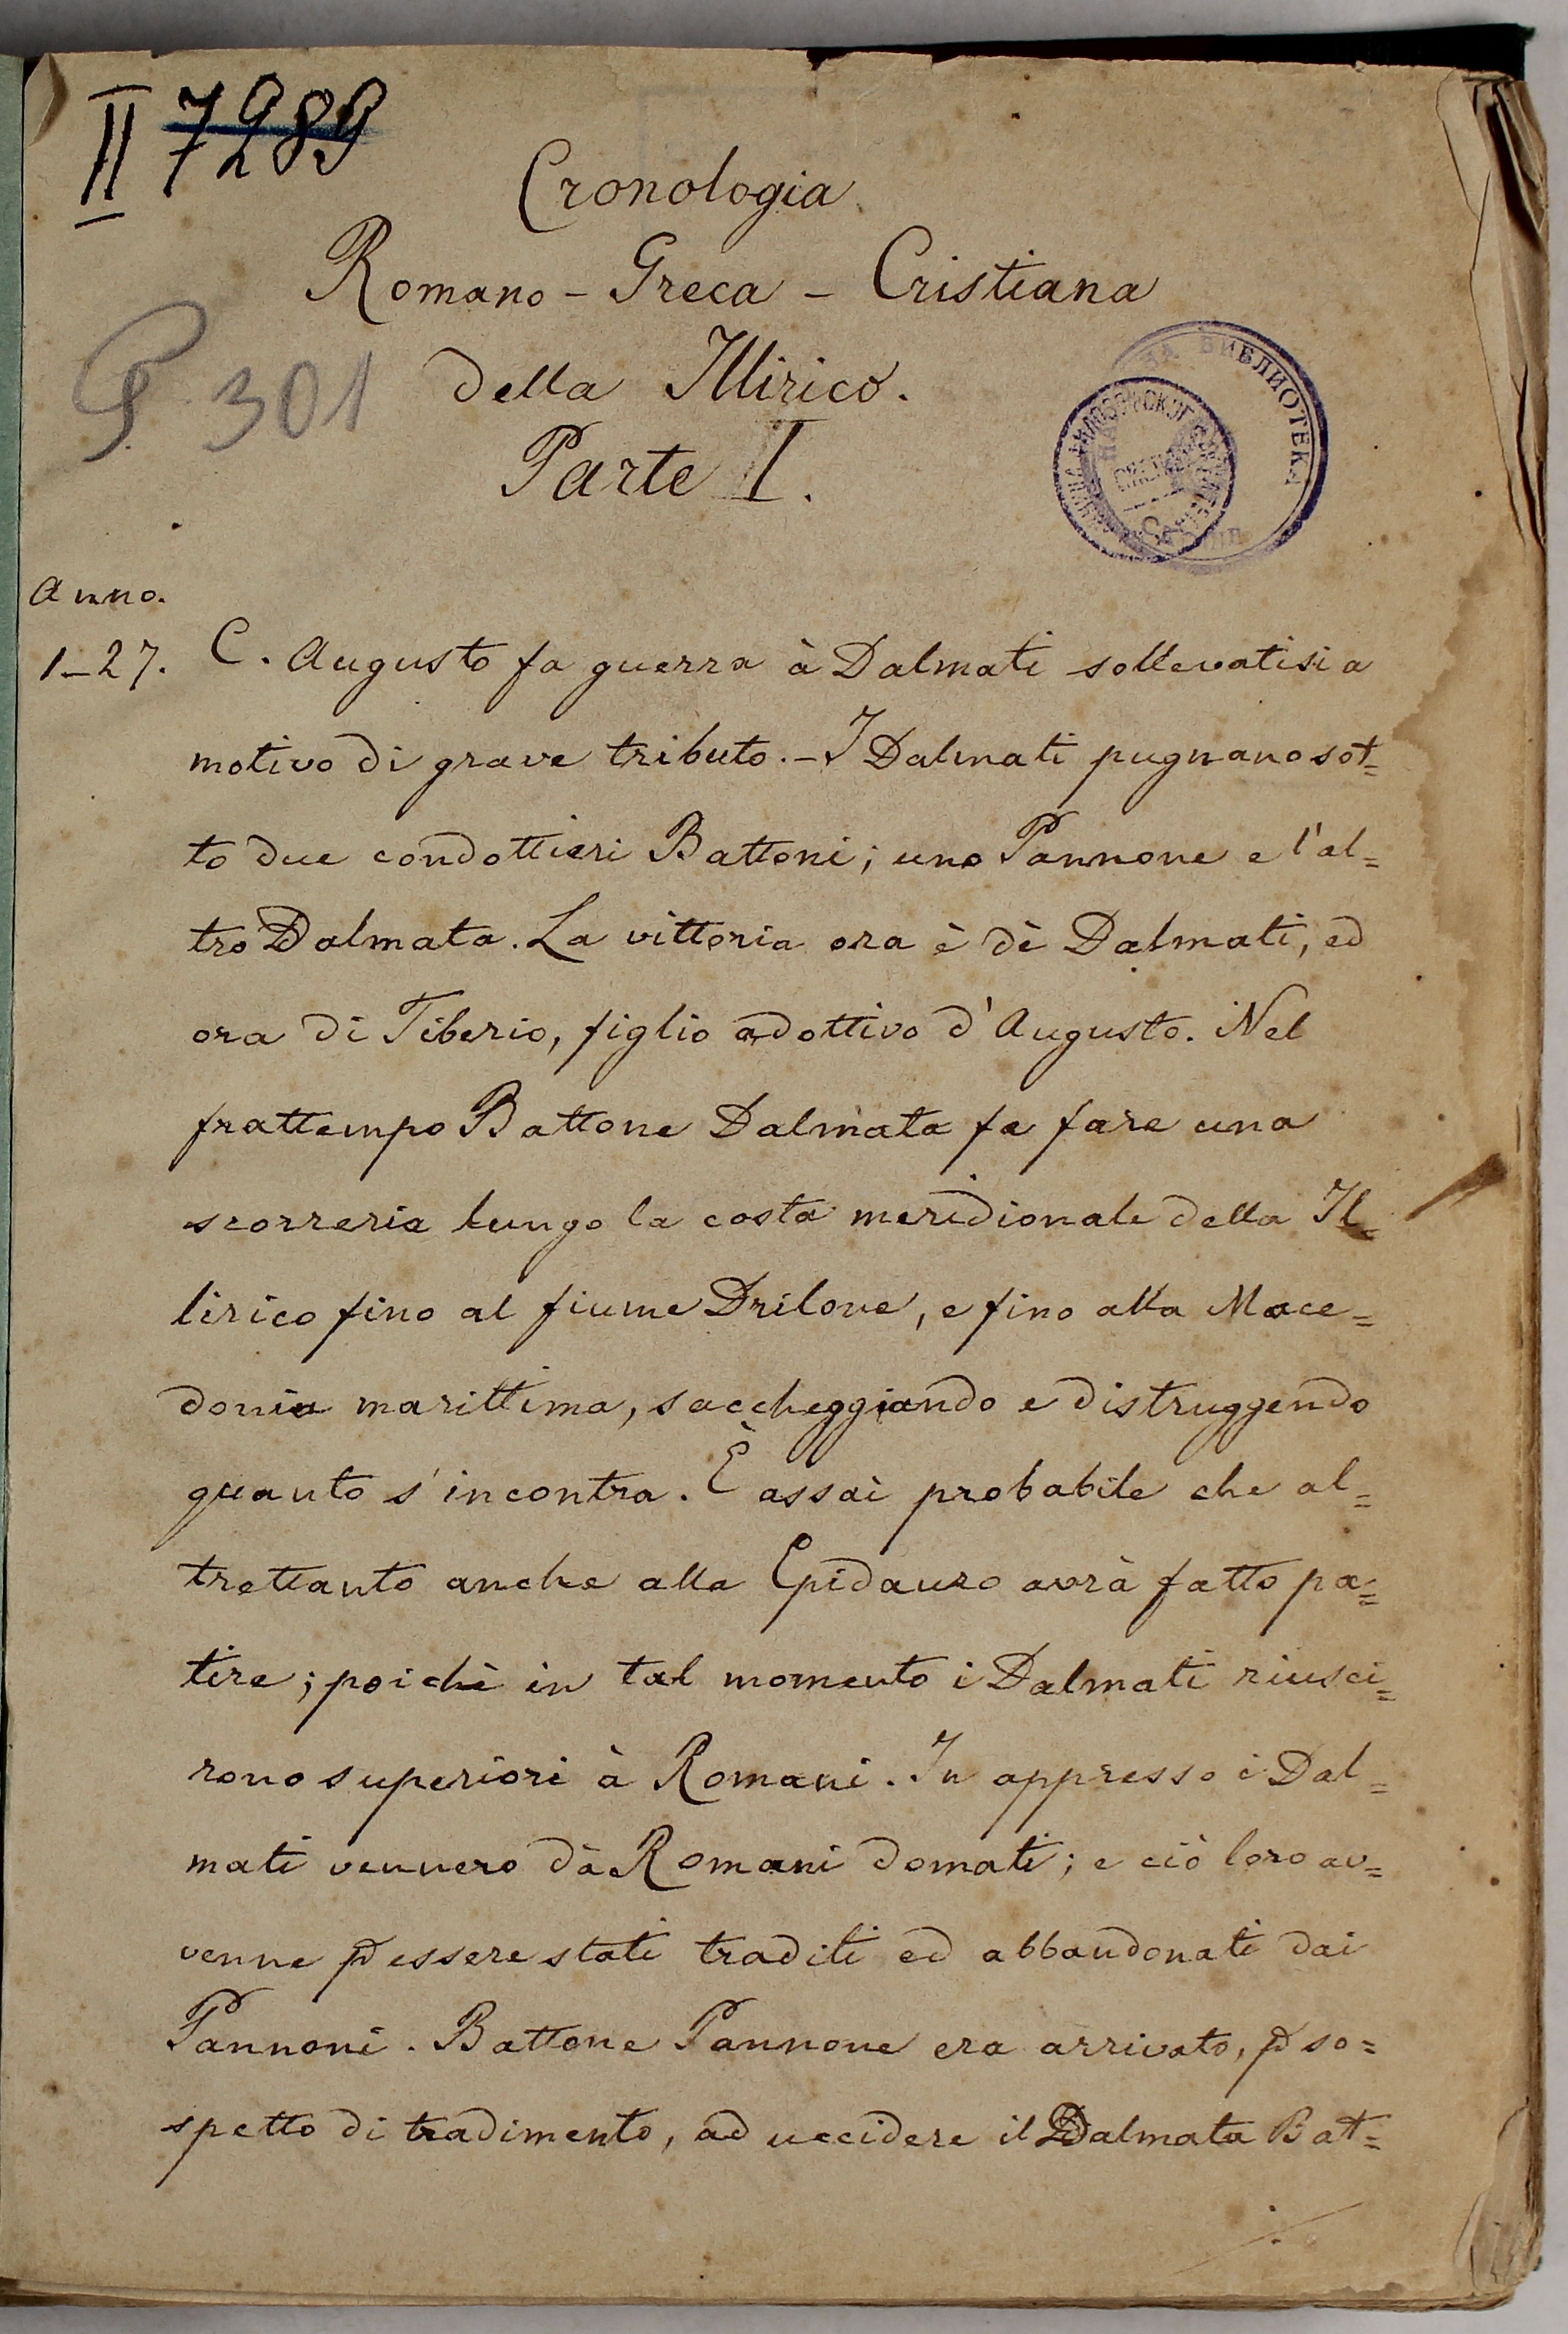 II 7289
Cronologia
Romano - Greca - Cristiana
della Illirico.
P. 301
Parte I.
БИБЛИОТЕКА
Anno.
1-27. C. Augusto fa guerra à Dalmati sollevatisi a
motivo di grave tributo. - I Dalmati pugnano sot=
to due condottieri Battoni; uno Pannone e l'al=
tro Dalmata. La vittoria ora è dè Dalmati, ed
ora di Tiberio, figlio adottivo d'Augusto. Nel
frattempo Battone Dalmata fa fare una
scorreria lungo la costa meridionale della Il=
lirico fino al fiume Drilone, e fino alla Mace=
donia marittima, saccheggiando e distruggendo
quanto s'incontra. È assai probabile che al=
trettanto anche alla Epidauro avrà fatto pa=
tire; poichè in tal momento i Dalmati riusci=
rono superiori à Romani. In appresso i Dal=
mati vennero dà Romani domati; e ciò loro av=
venne p essere stati traditi ed abbandonati dai
Pannoni. Battone Pannone era arrivato, p so=
spetto di tradimento, ad uccidere il Dalmata Bat=